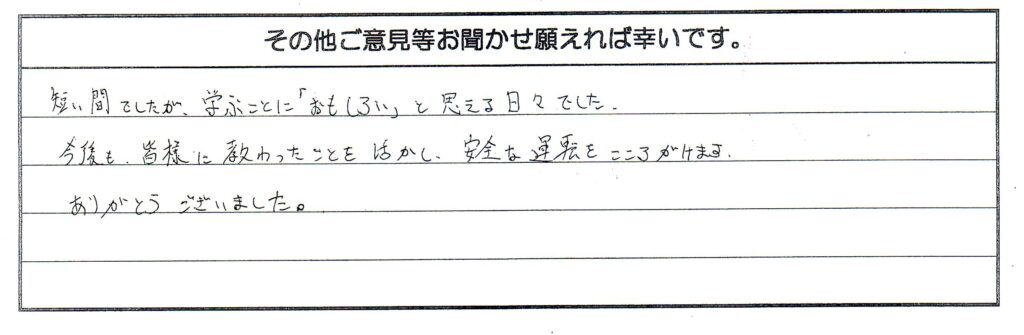 その他ご意見等お聞かせ願えれば幸いです。
短い間でしたが、学ぶことに「おもしろい」と思える日々でした.
今後も、皆様に教わったことを活かし、安全な運転をこころがけます.
ありがとうございました。